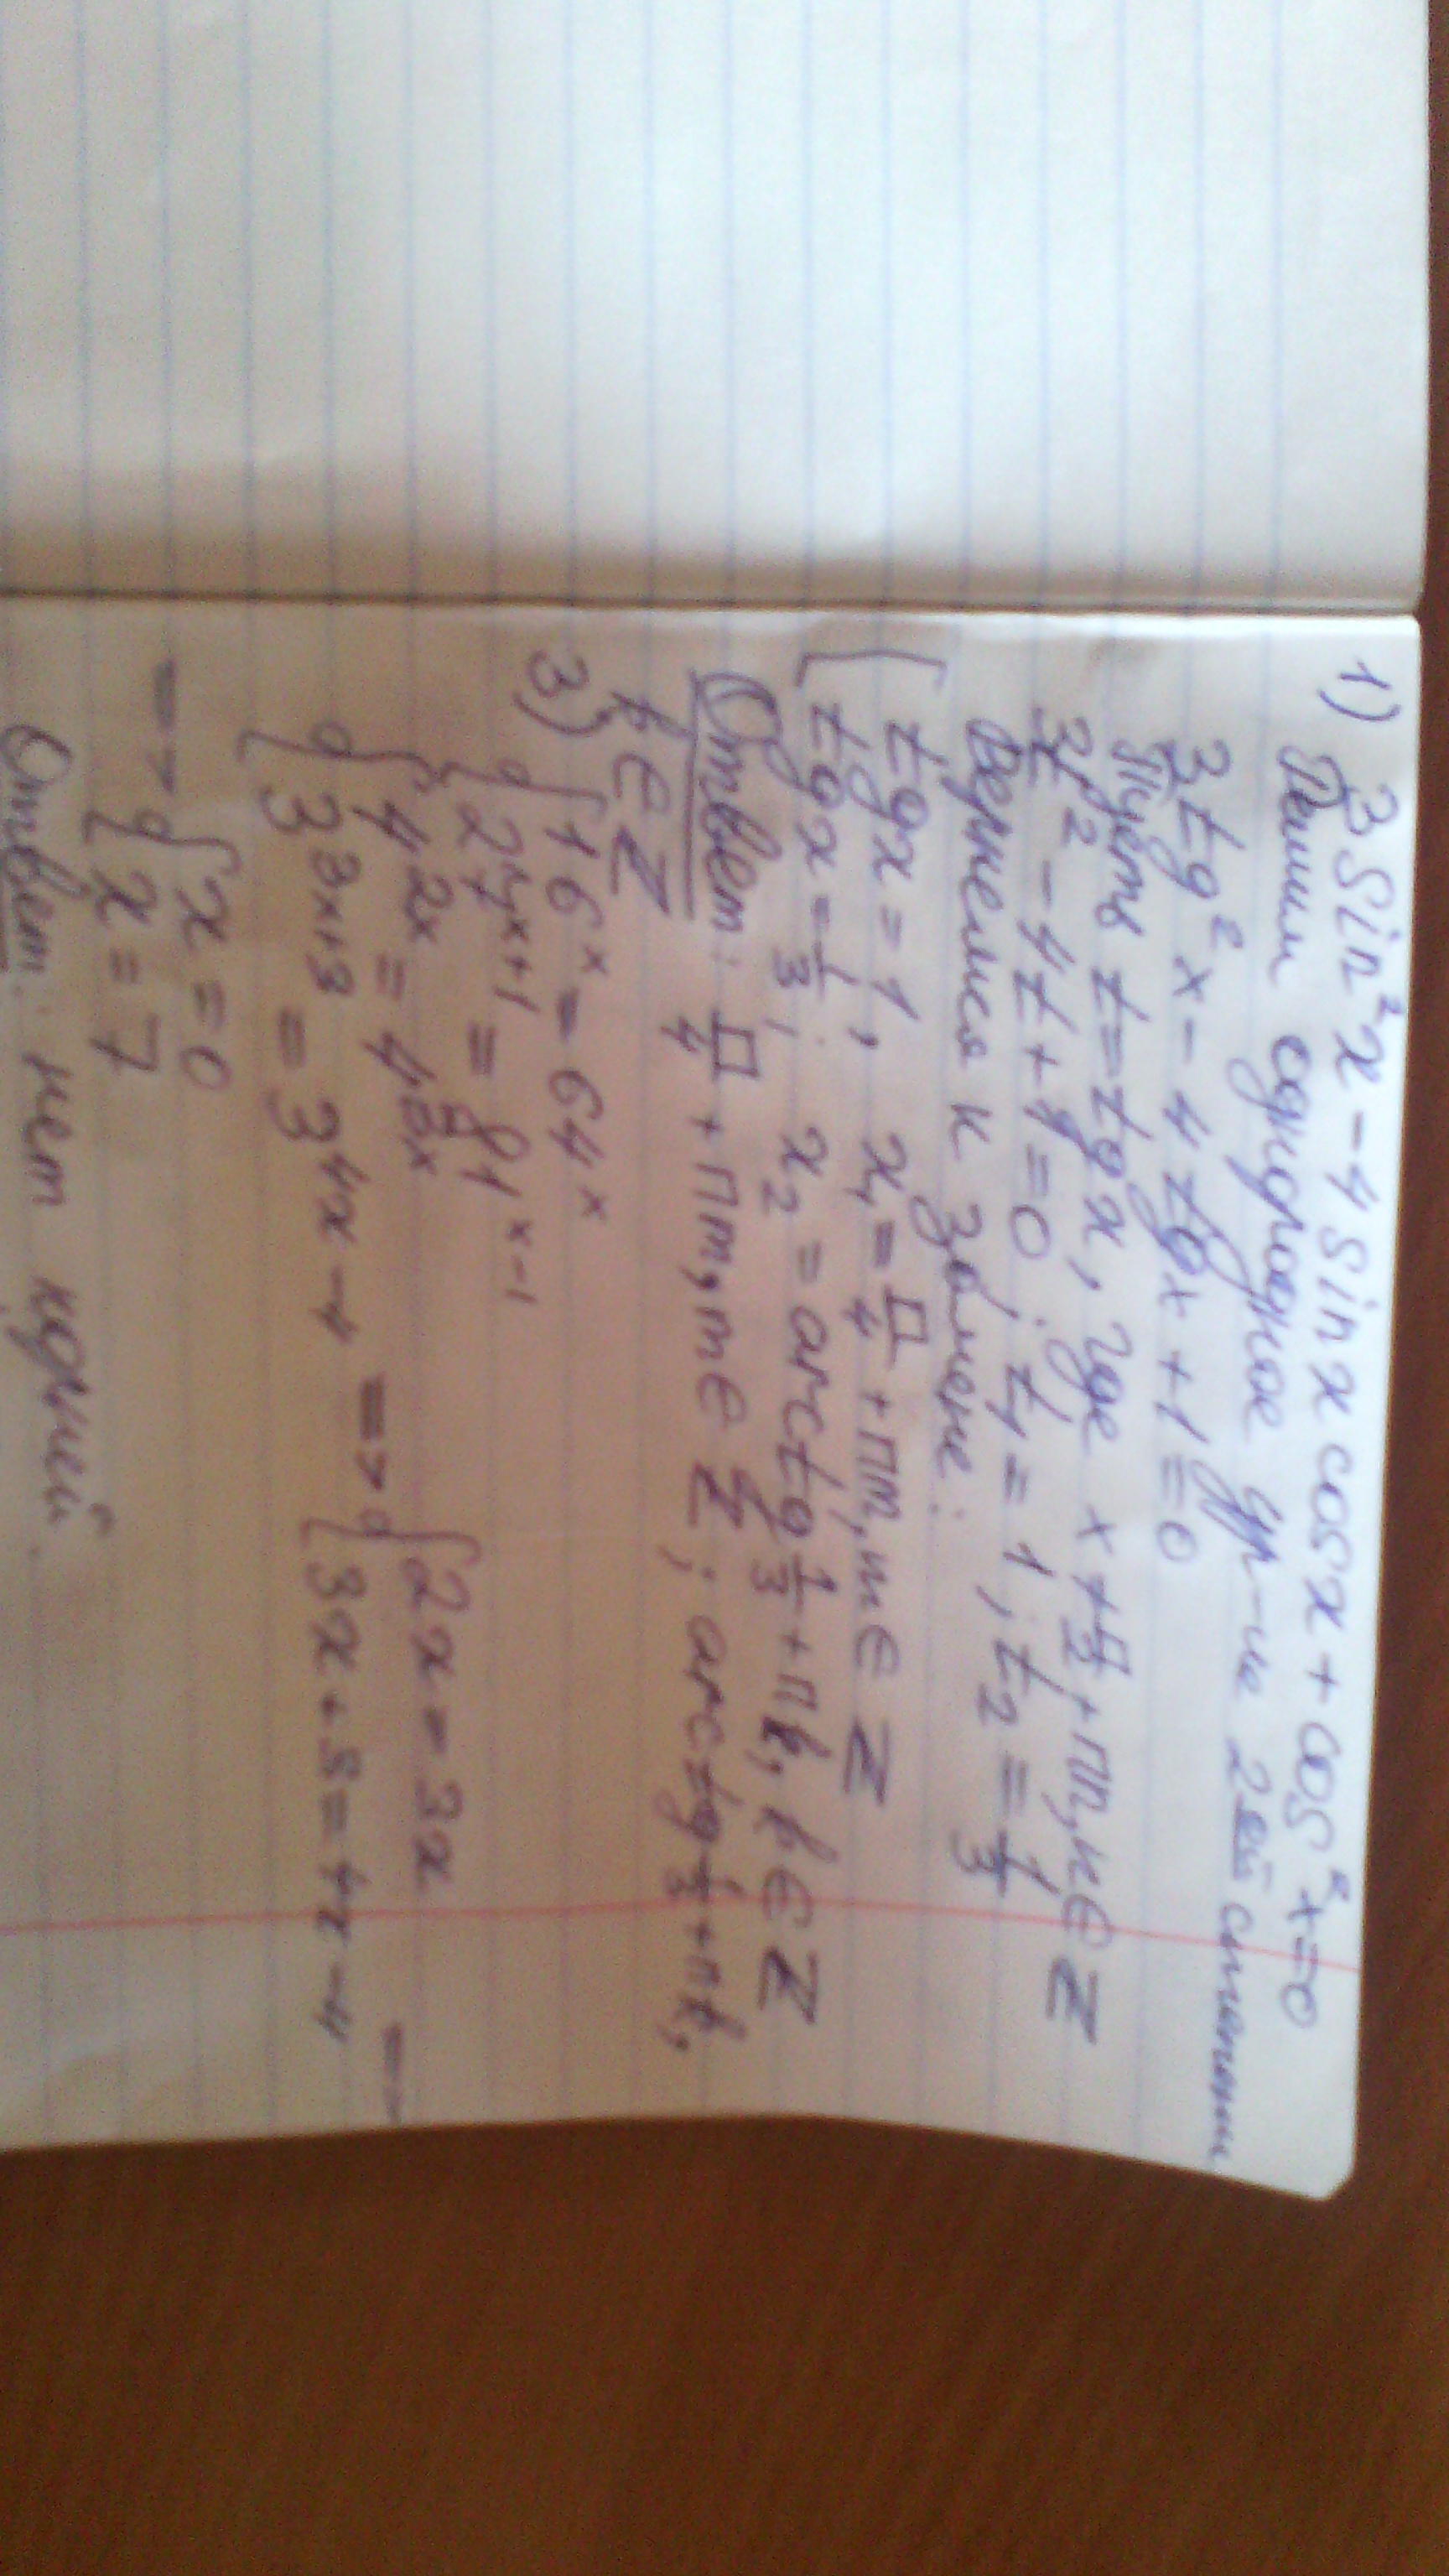 1) 3 sin²x - 4 sin x cos x + cos²x = 0
Решим однородное ур-и 2ей степени
3 tg²x - 4 tg x + 1 = 0
Пусть t = tg x, где x ≠ П/2 + Пn, n ∈ Z
3t² - 4t + 1 = 0; t₁ = 1, t₂ = 1/3
Вернемся к замене:
[ tg x = 1, x₁ = П/4 + Пm, m ∈ Z
tg x = 1/3; x₂ = arc tg 1/3 + Пk, k ∈ Z
Ответ: П/4 + Пm, m ∈ Z; arc tg 1/3 + Пk,
k ∈ Z
3) { 16ˣ = 64ˣ
27ˣ⁺¹ = 81ˣ⁻¹
{ 4²ˣ = 4³ˣ
3³ˣ⁺³ = 3⁴ˣ⁻⁴ => { 2x = 3x
3x + 3 = 4x - 4 —
—> { x = 0
x = 7
Ответ: нет корней.